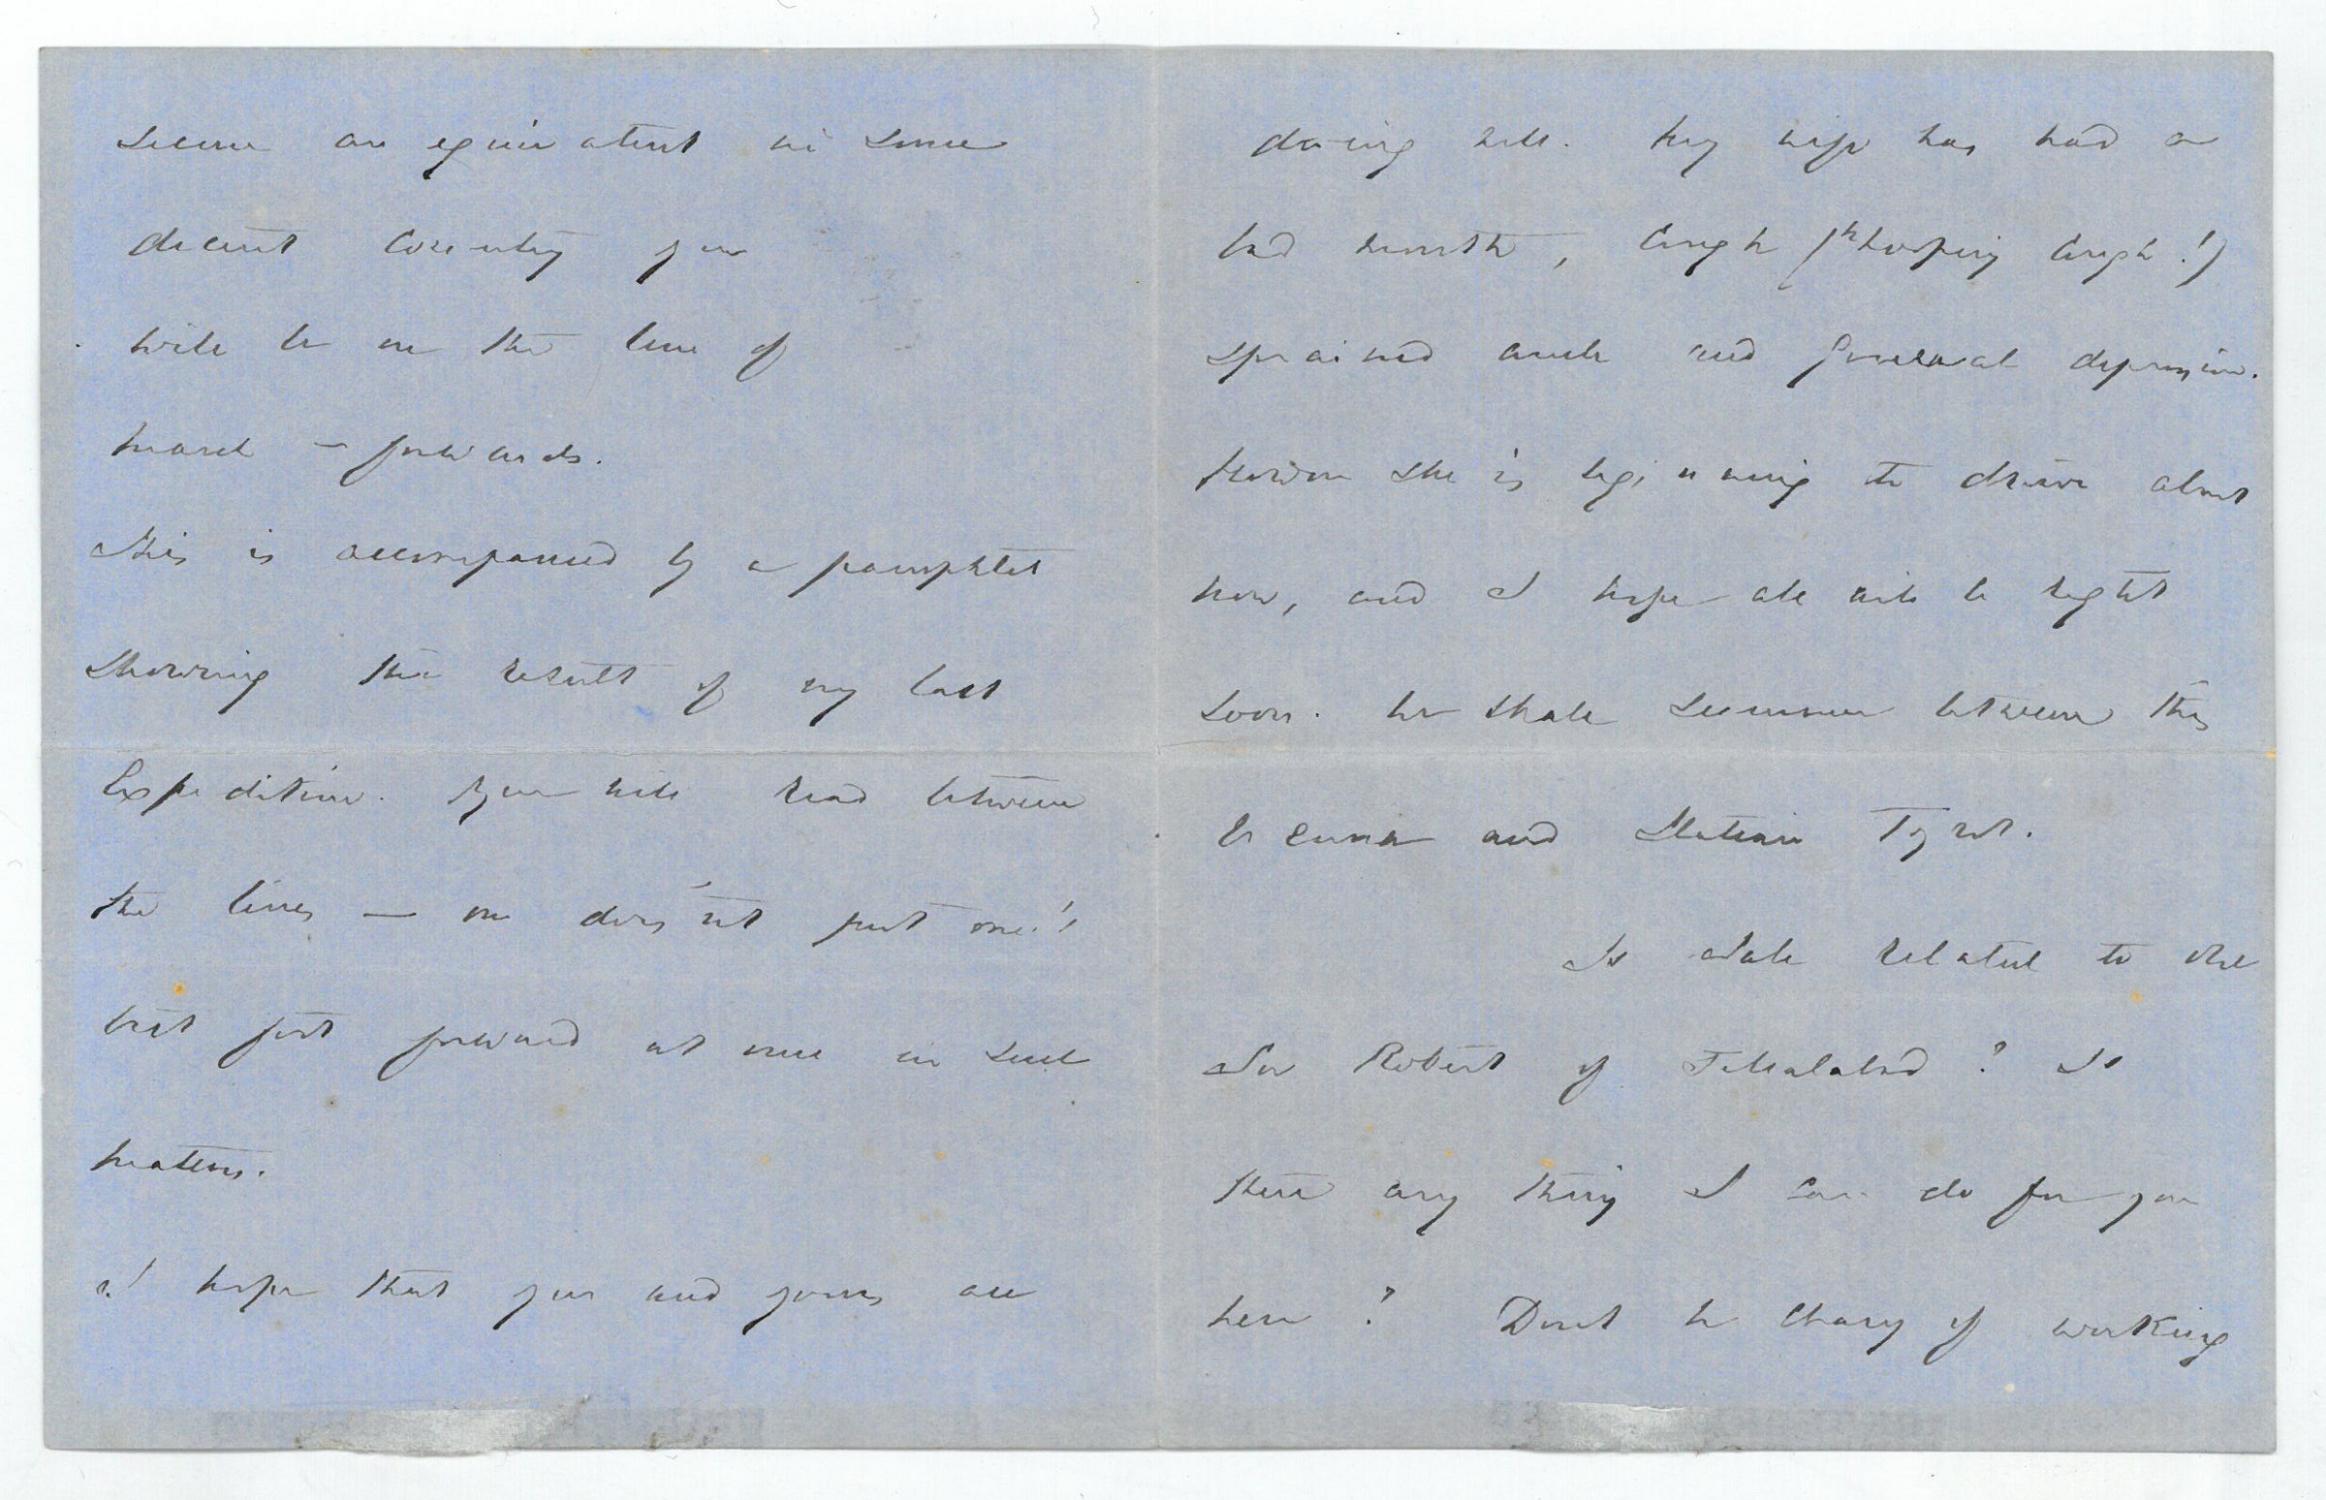 secure an equivalent in some
decent country you
will be on the line of
march – forwards.
This is accompanied by a pamphlet
showing the result of my last
Expedition. You will read between
the lines — one does'nt put one's
best foot forward at once in such
matters.
I hope that you and yours are
doing well. My wife has had a
bad month, cough (whooping cough!)
sprained ancle and general depression.
However she is beginning to drive about
now, and I hope all will be right
soon. We shall summer between this
Vienna and Styrian Tyrol.
Is Sale related to old
Sir Robert of Jellalabad? Is
there any thing I can do for you
here? Dont be chary of working